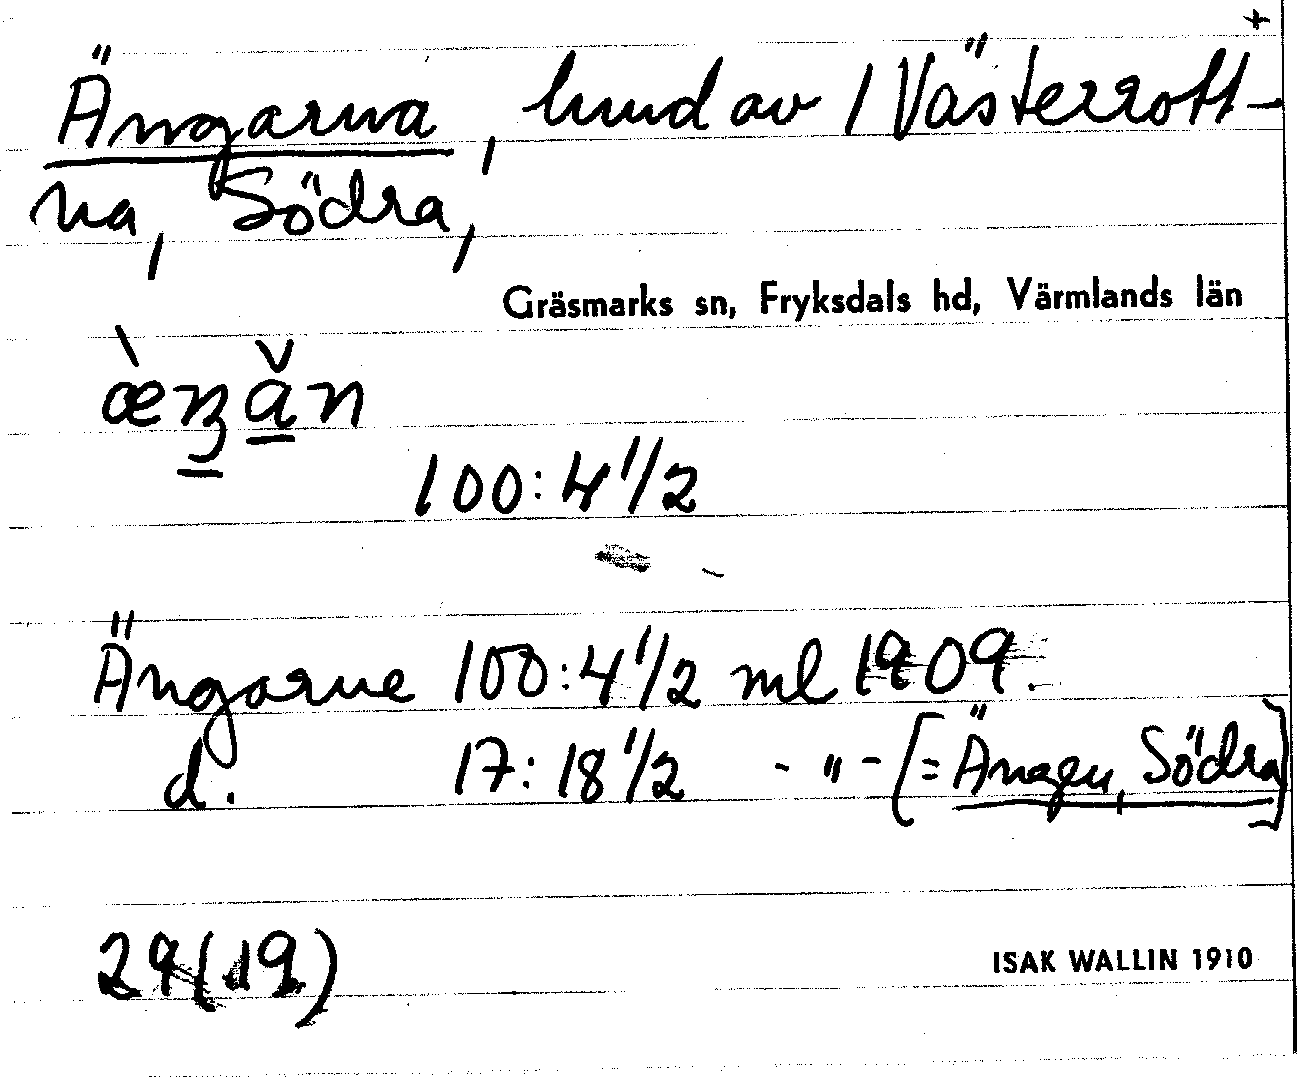 +
Ängarna, hmd av 1 Västerrott-
na, Södra,
Gräsmarks sn, Fryksdals hd, Värmlands län
100:4 1/2
Ängarne 100:4 1/2 ml 1909.
d. 17:18 1/2 - " - [= Ängen, Södra]
29(19)
ISAK WALLIN 1910